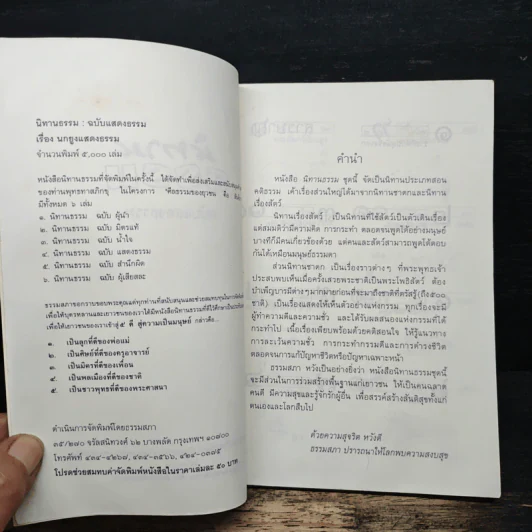 นิทานธรรม : ฉบับแสดงธรรม
เรื่อง นกยูงแสดงธรรม
จำนวนพิมพ์ ๕,๐๐๐ เล่ม
หนังสือนิทานธรรมที่จัดพิมพ์ในครั้งนี้ ได้จัดทำเพื่อส่งเสริมและ
ของท่านพุทธทาสภิกขุ ในโครงการ "ศีลธรรมของยุวชน คือ
มีทั้งหมด ๖ เล่ม
๑. นิทานธรรม ฉบับ ผู้นำ
๒. นิทานธรรม ฉบับ มิตรแท้
๓. นิทานธรรม ฉบับ น้ำใจ
๔. นิทานธรรม ฉบับ แสดงธรรม
๕. นิทานธรรม ฉบับ สำนึกผิด
๖. นิทานธรรม ฉบับ ผู้เสียสละ
ธรรมสภาขอกราบขอบพระคุณแด่ทุกท่านที่สนับสนุนและช่วยสมทบทุนในการจัดพิมพ์
เพื่อให้บุตรหลานและเยาวชนของเราได้มีหนังสือนิทานธรรมที่ดีไว้ศึกษา
เพื่อให้เยาวชนของเราเข้าสู่ ๕ ดี สู่ความเป็นมนุษย์ กล่าวคือ...
๑. เป็นลูกที่ดีของพ่อแม่
๒. เป็นศิษย์ที่ดีของครูอาจารย์
๓. เป็นมิตรที่ดีของเพื่อน
๔. เป็นพลเมืองที่ดีของชาติ
๕. เป็นชาวพุทธที่ดีของพระศาสนา
ดำเนินการจัดพิมพ์โดยธรรมสภา
๓๕/๒๗๐ จรัลสนิทวงศ์ ๖๒ บางพลัด กรุงเทพฯ ๑๐๗๐๐
โทรศัพท์ ๔๓๔-๔๒๖๗, ๔๓๔-๓๕๖๖, ๔๒๔-๐๓๗๕
โปรดช่วยสมทบค่าจัดพิมพ์หนังสือในราคาเล่มละ ๕๐ บาท
คำนำ
หนังสือ นิทานธรรม ชุดนี้ จัดเป็นนิทานประเภทสอน
คติธรรม เค้าเรื่องส่วนใหญ่ได้มาจากนิทานชาดกและนิทาน
เรื่องสัตว์
นิทานเรื่องสัตว์ เป็นนิทานที่ใช้สัตว์เป็นตัวเดินเรื่อง
แต่สมมติว่ามีความคิด การกระทำ ตลอดจนพูดได้อย่างมนุษย์
บางทีก็มีคนเกี่ยวข้องด้วย แต่คนและสัตว์สามารถพูดโต้ตอบ
กันได้เหมือนมนุษย์ธรรมดา
ส่วนนิทานชาดก เป็นเรื่องราวต่างๆ ที่พระพุทธเจ้า
ประสบพบเห็นเมื่อครั้งเสวยพระชาติเป็นพระโพธิสัตว์ ต้อง
บำเพ็ญบารมีต่างๆมากมายก่อนที่จะมาถึงชาติที่ตรัสรู้ (ถึง๕๐๐
ชาติ) เป็นเรื่องแสดงให้เห็นตัวอย่างแห่งกรรม ทุกเรื่องจะมี
ผู้ทำความดีและความชั่ว และได้รับผลสนองแห่งกรรมที่ได้
กระทำไป เนื้อเรื่องเพียบพร้อมด้วยคติสอนใจ ให้รู้แนวทาง
การละเว้นความชั่ว การกระทำกรรมดีและการดำรงชีวิต
ตลอดจนการแก้ปัญหาชีวิตหรือปัญหาเฉพาะหน้า
ธรรมสภา หวังเป็นอย่างยิ่งว่า หนังสือนิทานธรรมชุดนี้
จะมีส่วนในการร่วมสร้างพื้นฐานแก่เยาวชน ให้เป็นคนฉลาด
คนดี มีความสุขและรู้จักรักผู้อื่น เพื่อสรรค์สร้างสันติสุขทั้งแก่
ตนเองและโลกสืบไป
ด้วยความสุจริต หวังดี
ธรรมสภา ปรารถนาให้โลกพบความสงบสุข